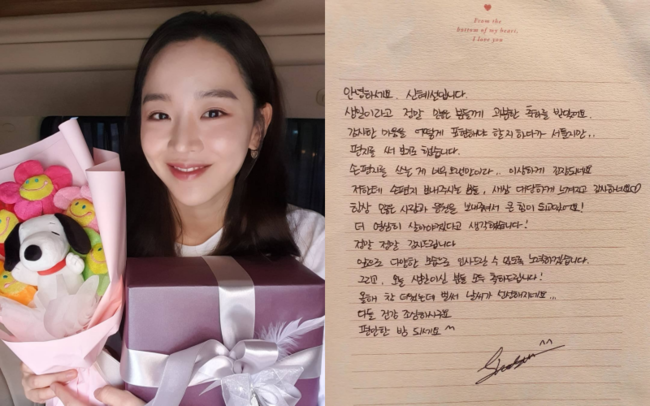 From the
bottom of my heart,
I love you
안녕하세요. 신혜선입니다.
생일이라고 정말 많은 분들께 과분한 축하를 받았네요.
감사한 마음을 어떻게 표현해야 할지 하다가 서툴지만..
편지를 써 보기로 했습니다.
손편지를 쓰는 게 너무 오랜만이라.. 이상하게 긴장되네요
저한테 손편지 보내주시는 분들, 새삼 대단하게 느껴지고 감사하네요♡
항상 많은 사랑과 응원을 보내주셔서 큰 힘이 되고있어요!
더 열심히 살아야겠다고 생각했습니다!
정말 정말 감사드립니다
앞으로 다양한 모습으로 인사드릴 수 있도록 노력하겠습니다.
그리고, 오늘 생일이신 분들 모두 축하드립니다!
올해 참 더웠는데 벌써 날씨가 선선해지네요...
다들 건강 조심하시구요
편안한 밤 되세요 ^^